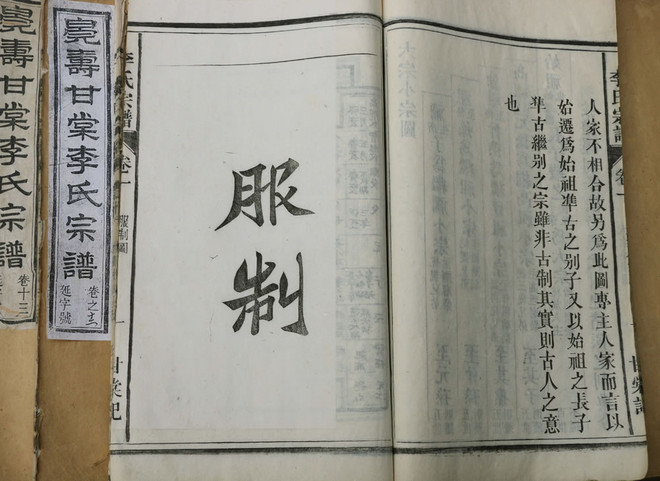 人家不相合故另為此圖專主人家而言以
始遷為始祖準古之别子又以始祖之長子
準古繼别之宗雖非古制其實則古人之意
也
李氏宗譜 卷一
服制
李氏宗譜 卷一 服制圖 一 甘棠
壽甘棠李氏宗譜
卷之
延字號
壽甘棠李氏宗譜
卷十三